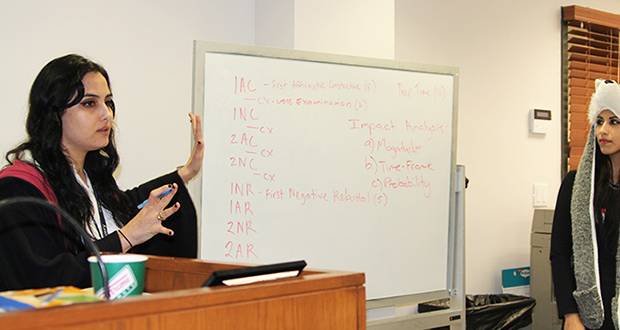 1AC - First Affirmative Constructive (8)
- CX - cross Examination (3)
1NC
- CX
2AC
- CX
2NC
- CX
1NR - First Negative Rebuttal (5)
1AR
2NR
2AR
Prep Time
Impact Analysis
a) Magnitude
b) Time-Frame
c) Probability